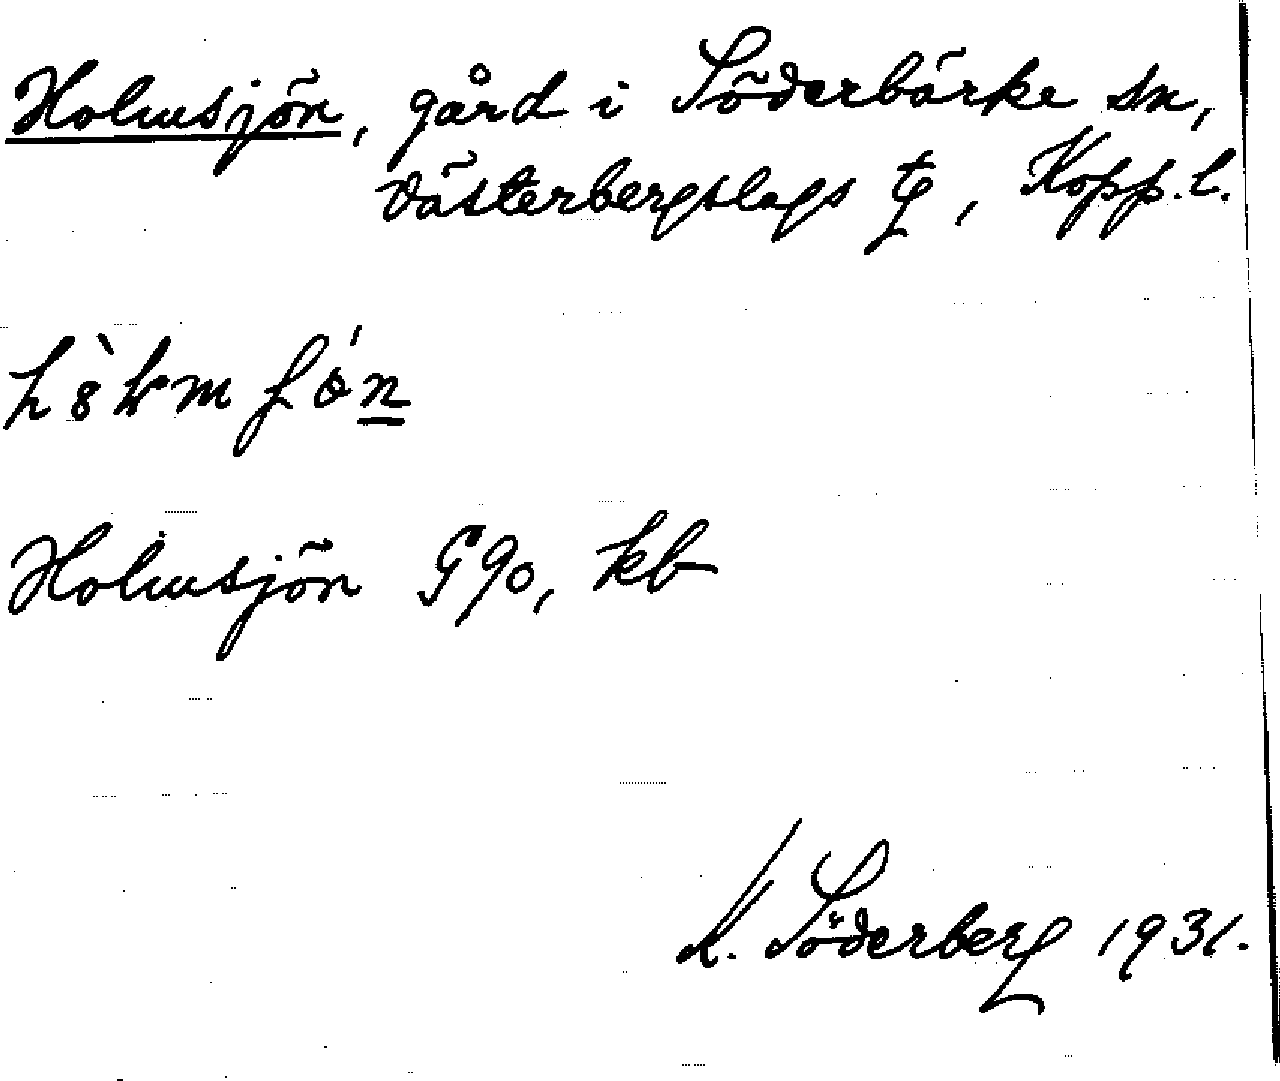 Holmsjön, gård i Söderbärke sn,
Västerbergslags tg, Kopp. l.
Holmsjön G 90, kb
K. Söderberg 1931.